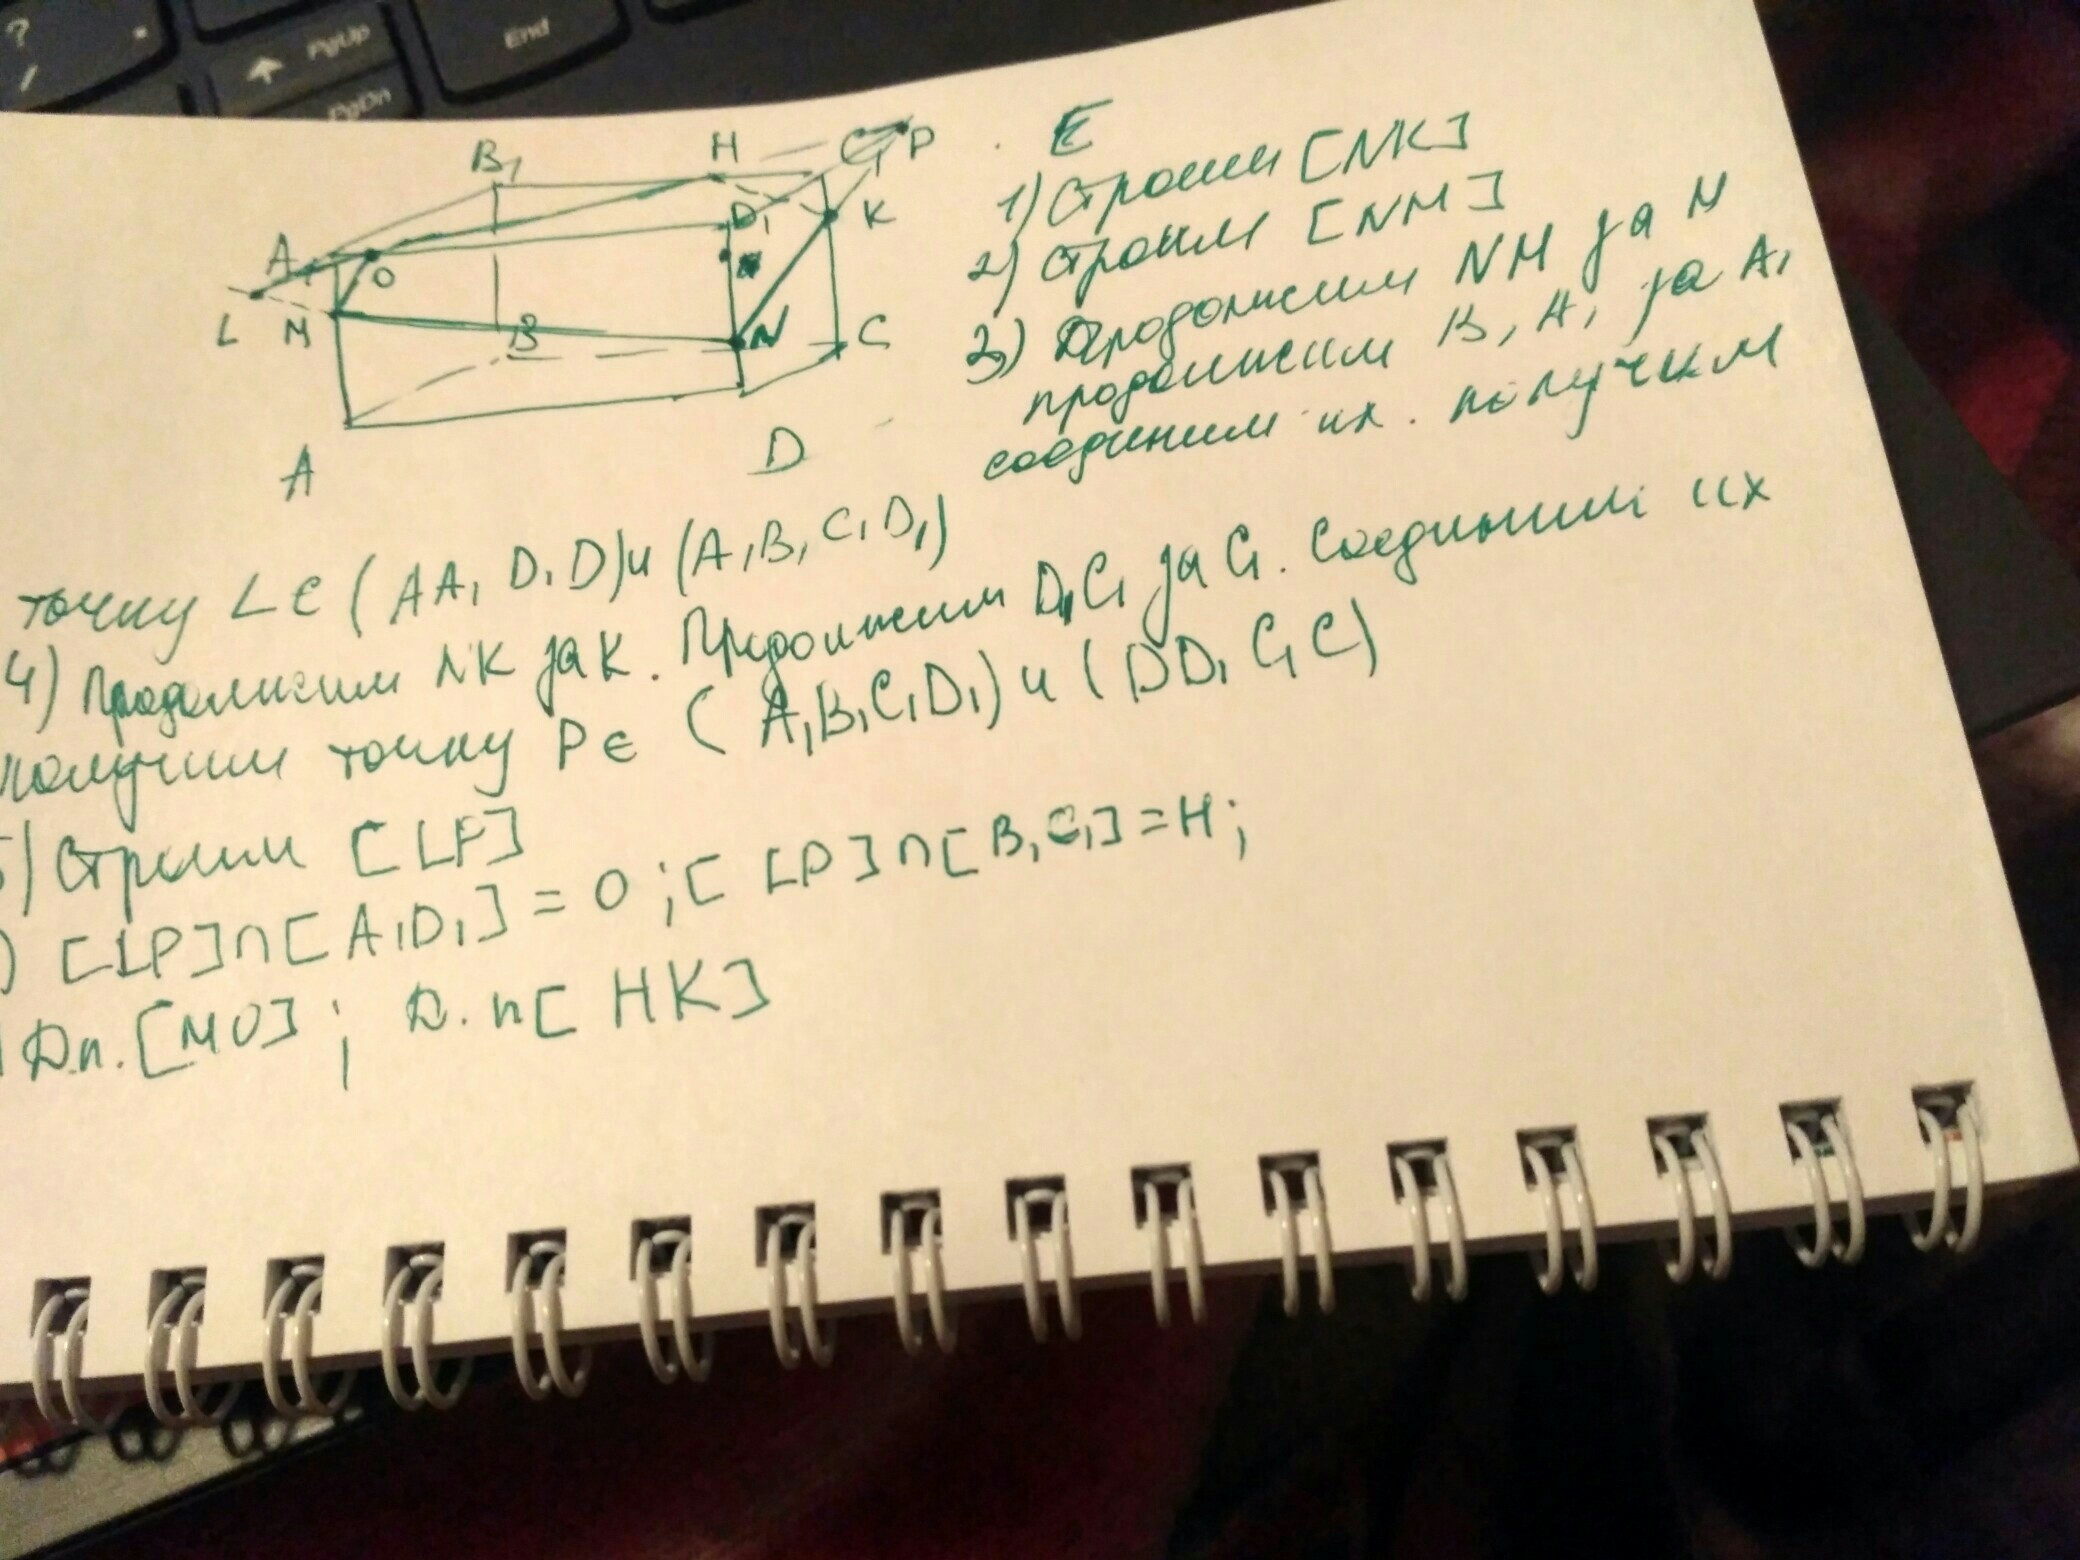 ?
/
PgUp
End
PgDn
B₁
H
C₁
P
E
A₁
O
D₁
K
L
M
B
N
C
A
D
1) Строим [NK]
2) Строим [NM]
3) Продолжим NM за M
продолжим B₁A₁ за A₁
соединим их. получим
точку L ∈ (AA₁D₁D) и (A₁B₁C₁D₁)
4) Продолжим NK за K. Продолжим D₁C₁ за C₁. Соединим их
получим точку P ∈ (A₁B₁C₁D₁) и (DD₁C₁C)
5) Строим [LP]
) [LP]∩[A₁D₁] = O; [LP]∩[B₁C₁] = H;
Д.п. [MO]; Д.п [HK]